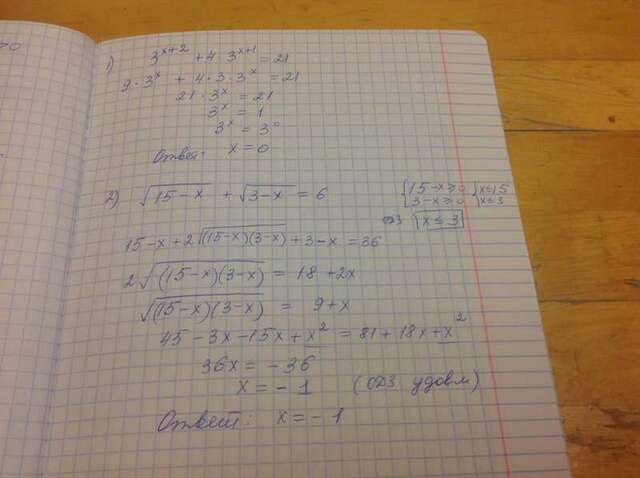 1) 3^{x+2} + 4 3^{x+1} = 21
9·3^x + 4·3·3^x = 21
21·3^x = 21
3^x = 1
3^x = 3^0
Ответ: x = 0
2) √(15-x) + √(3-x) = 6
{15-x≥0 {x≤15
{3-x≥0 {x≤3
ОДЗ x ≤ 3
15-x+2√((15-x)(3-x))+3-x=36
2√((15-x)(3-x)) = 18+2x
√((15-x)(3-x)) = 9+x
45-3x-15x+x² = 81+18x+x²
36x = -36
x = -1 (ОДЗ удовл)
Ответ: x = -1